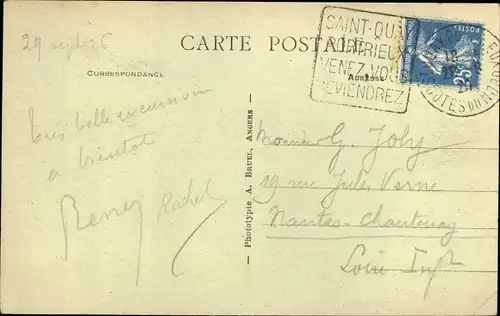 29 sept 26
CARTE POSTALE
CORRESPONDANCE
SAINT-QUAY
PORTRIEUX
VENEZ-VOUS
REVIENDREZ
POSTES
25
COTES DU NORD
Très belle excursion
a bientôt
Rachel
Phototypie A. BRUEL, ANGERS
Monsieur G. Joly
19 rue Jules Verne
Nantes-Chantenay
Loire Infre